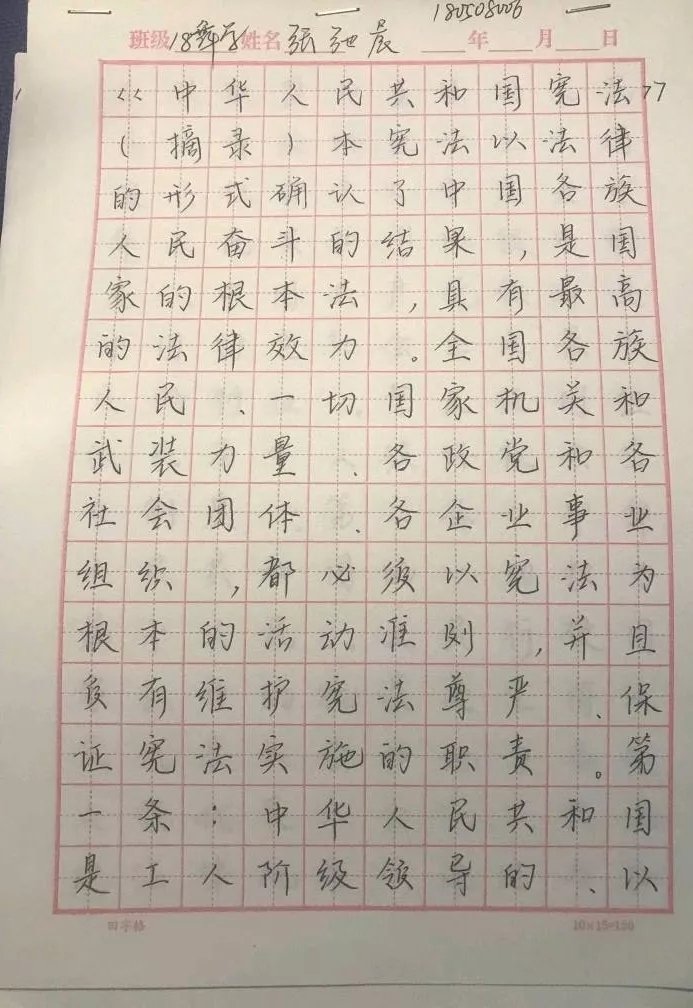 180508006
班级18舞学姓名张驰晨 年 月 日
《中华人民共和国宪法》
(摘录)本宪法以法律
的形式确认了中国各族
人民奋斗的结果,是国
家的根本法,具有最高
的法律效力。全国各族
人民、一切国家机关和
武装力量、各政党和各
社会团体、各企业事业
组织,都必须以宪法为
根本的活动准则,并且
负有维护宪法尊严、保
证宪法实施的职责。第
一条:中华人民共和国
是工人阶级领导的、以
田字格 10×15=150